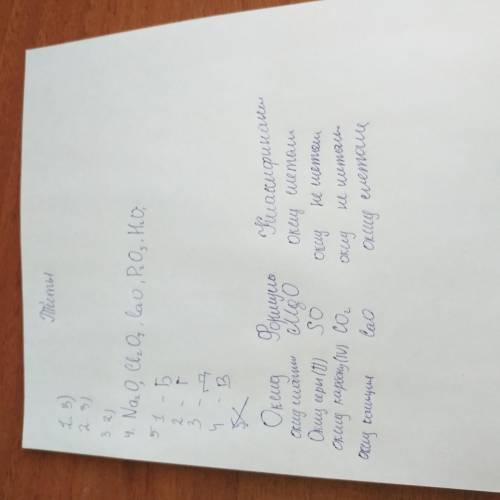 Тесты
1. 3)
2. 3)
3 2)
4. Na2O, Cl2O7, CaO, P2O5, H2O,
5 1 - Б
2 - Г
3 - Д
4 - В
Оксид Формула Классификация
оксид магния MgO оксид металл
Оксид серы (II) SO оксид не металл
оксид карбону (IV) CO2 оксид не металл
оксид кальция CaO оксид металл